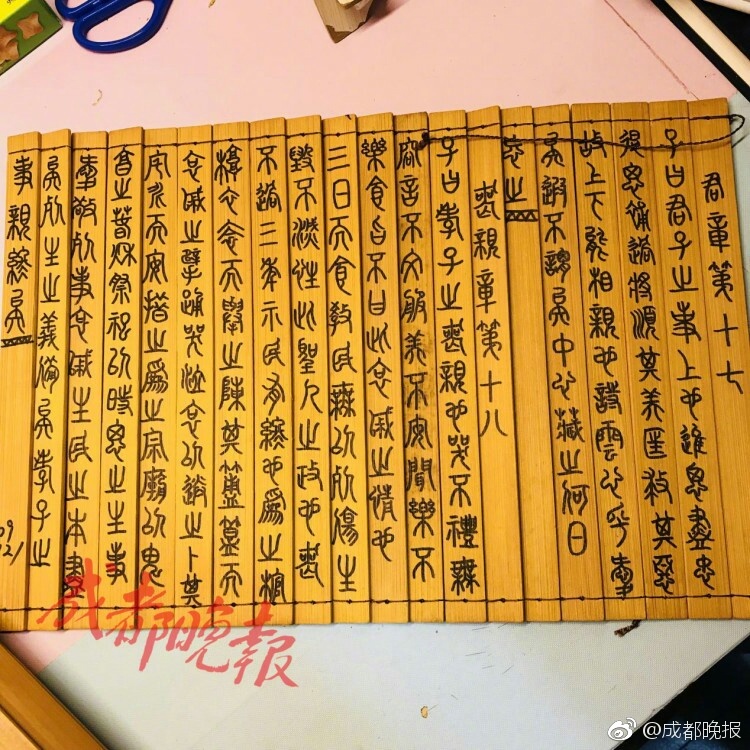 君章第十七
子曰君子之事上也進思盡忠
退思補過將順其美匡救其惡
故上下能相親也詩雲心乎愛
矣遐不謂矣中心藏之何日
忘之
喪親章第十八
子曰孝子之喪親也哭不禮無
容言不文服美不安聞樂不
樂食旨不甘此哀戚之情也
三日而食教民無以死傷生
毀不滅性此聖人之政也喪
不過三年示民有終也為之棺
椁衣衾而舉之陳其簠簋而
哀戚之擗踊哭泣哀以送之卜其
宅兆而安措之為之宗廟以鬼
享之春秋祭祀以時思之生事
愛敬死事哀戚生民之本盡
矣死生之義備矣孝子之
事親終矣
成都晚报
@成都晚报